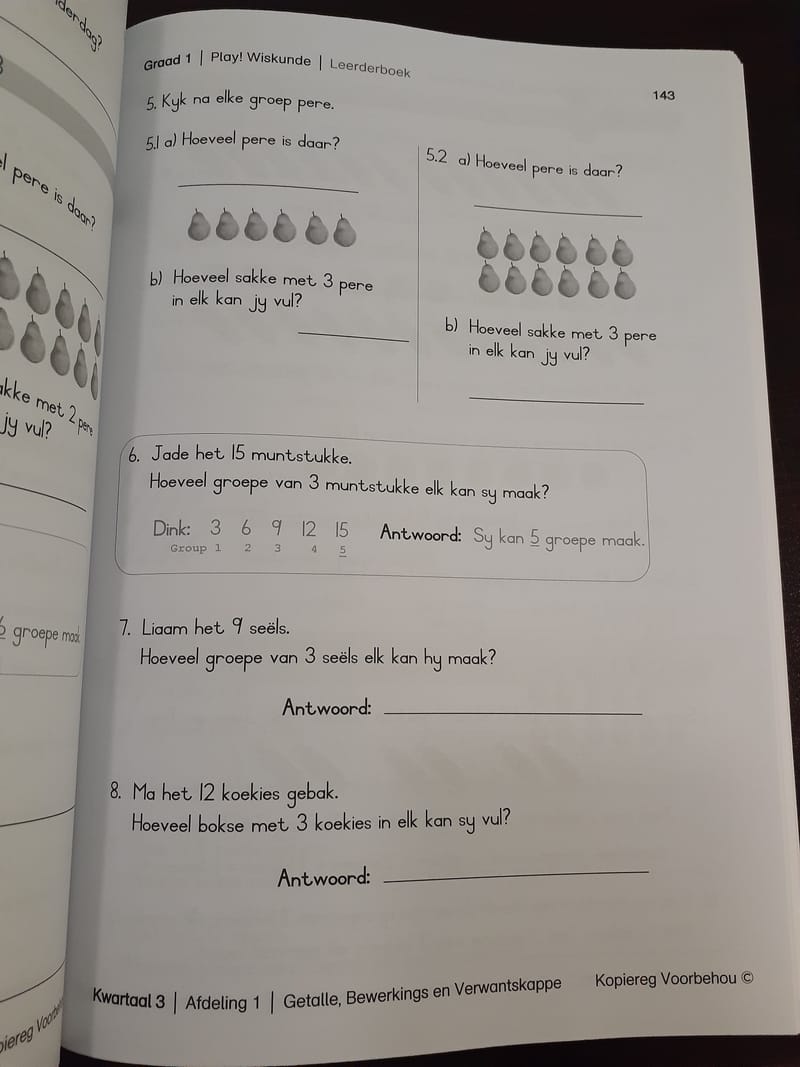 derdag?
pere is daar?
akke met 2 pere
jy vul?
6 groepe maak
Graad 1 | Play! Wiskunde | Leerderboek
143
5. Kyk na elke groep pere.
5.1 a) Hoeveel pere is daar?
b) Hoeveel sakke met 3 pere
in elk kan jy vul?
5.2 a) Hoeveel pere is daar?
b) Hoeveel sakke met 3 pere
in elk kan jy vul?
6. Jade het 15 muntstukke.
Hoeveel groepe van 3 muntstukke elk kan sy maak?
Dink: 3 6 9 12 15 Antwoord: Sy kan 5 groepe maak.
Group 1 2 3 4 5
7. Liaam het 9 seëls.
Hoeveel groepe van 3 seëls elk kan hy maak?
Antwoord:
8. Ma het 12 koekies gebak.
Hoeveel bokse met 3 koekies in elk kan sy vul?
Antwoord:
Kwartaal 3 | Afdeling 1 | Getalle, Bewerkings en Verwantskappe
Kopiereg Voorbehou ©